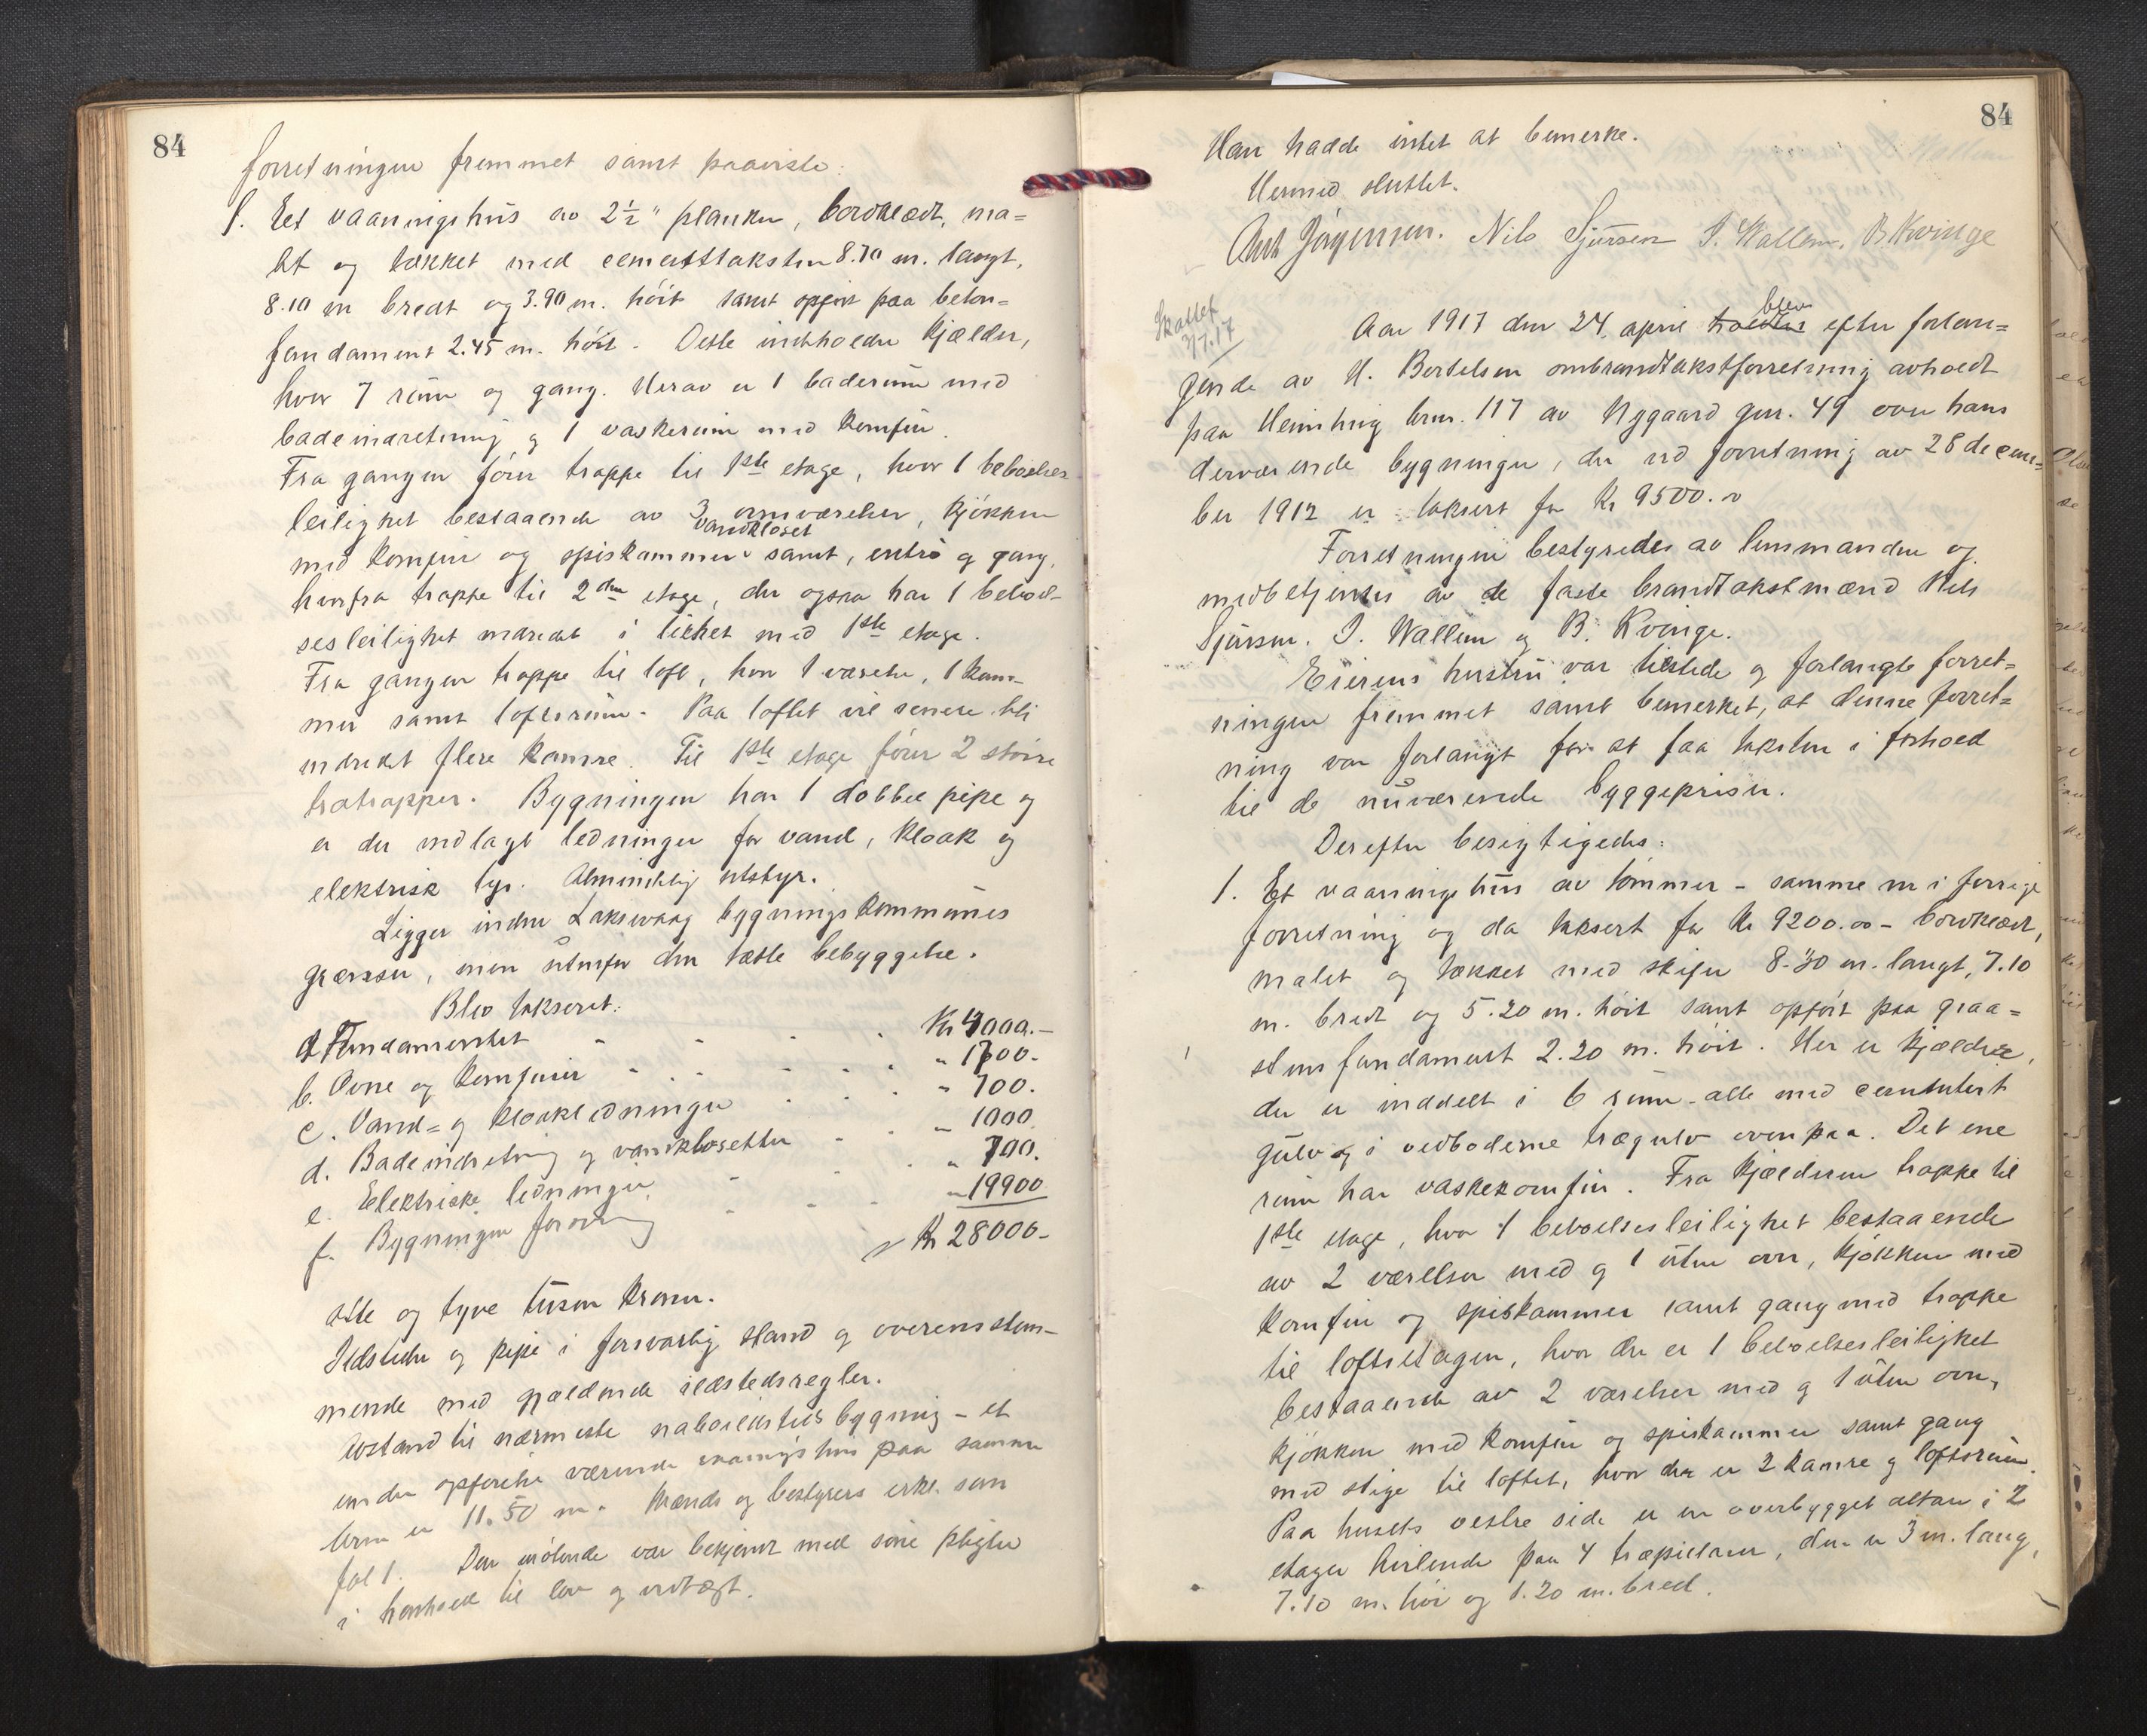 84
forretningen fremmet samt paaviste:
1. Et vaaningshus av 2½" planker, bordklædt, ma=
let og tækket med cementtaksten 8.70 m. langt,
8.10 m bredt og 3.90 m. høit samt opført paa beton=
fundament 2.45 m. høit. Dette indholder kjælder,
hvor 7 rum og gang. Herav er 1 baderum med
badeindretning og 1 vaskerum med komfur.
Fra gangen fører trappe til 1ste etage, hvor 1 beboelses
leilighet bestaaende av 3 ovnværelser, kjøkken
vandkloset
med komfur og spiskammer samt, entré og gang,
hvorfra trappe til 2den etage, der ogsaa har 1 beboel-
sesleilighet indredet i likhet med 1ste etage.
Fra gangen trappe til loft, hvor 1 værelse, 1 kam-
mer samt loftsrum. Paa loftet vil senere bli
indredet flere kamre. Til 1ste etage fører 2 større
trætrapper. Bygningen har 1 dobbel pipe og
er der indlagt ledninger for vand, kloak og
elektrisk lys. Almindelig utstyr.
Ligger inden Laksevaag bygningskommunes
grænser, men utenfor den tætte bebyggelse.
Blev taksert:
a. Fundamentet - - - Kr 4000.-
b. Ovne og komfurer - - - " 1700.-
c. Vand= og kloakledninger - - " 700.
d. Badeindretning og vandklosetter - - " 1000
e. Elektriske ledninger - - " 700.
f. Bygningen forøvrig - - " 19900
Kr 28000-
otte og tyve tusen kroner.
Ildsteder og pipe i forsvarlig stand og overensstem-
mende med gjældende ildstedsregler.
Avstand til nærmeste naboildstedsbygning - et
under opførelse værende vaaningshus paa samme
brm er 11.50 m. Mænds og bestyrers erkl. som
fol 1. Den møtende var bekjent med sine pligter
i henhold til lov og vedtægt.
84
Han hadde intet at bemerke.
Hermed sluttet.
Ant Jørgensen. Nils Sjursen I. Wallem. B Kvinge
Skattef
3/7.17
blev
Aar 1917 den 24. april efter forlan=
gende av H. Bertelsen ombrandtakstforretning avholdt
paa Heimhug brm. 117 av Nygaard gnr. 49 over hans
derværende bygninger, der ved forretning av 28 decem=
ber 1912 er taksert for Kr 9500.00
Forretningen bestyredes av lensmanden og
medbetjentes av de faste brandtakstmænd Nils
Sjursen. I. Wallem og B. Kvinge.
Eierens hustru var tilstede og forlangte forret=
ningen fremmet samt bemerket, at denne forret=
ning var forlangt for at faa taksten i forhold
til de nuværende byggepriser.
Derefter besigtigedes:
1. Et vaaningshus av tømmer - samme som i forrige
forretning og da taksert for Kr 9200.00 - bordklædt,
malet og tækket med skifer 8.30 m. langt, 7.10
m. bredt og 5.20 m. høit samt opført paa graa=
stens fundament 2.20 m. høit. Her er kjælder,
der er inddelt i 6 rum - alle med cementert
gulv og i vedboderne trægulv ovenpaa. Det ene
rum har vaskekomfur. Fra kjælderen trappe til
1ste etage, hvor 1 beboelsesleilighet bestaaende
av 2 værelser med og 1 uten ovn, kjøkken med
komfur og spiskammer samt gang med trappe
til loftsetagen, hvor der er 1 beboelsesleilighet
bestaaende av 2 værelser med og 1 uten ovn,
kjøkken med komfur og spiskammer samt gang
med stige til loftet, hvor der er 2 kamre og loftsrum.
Paa husets vestre side er en overbygget altan i 2
etager hvilende paa 4 træpillarer, der er 3 m. lang,
7.10 m. høi og 1.20 m. bred.